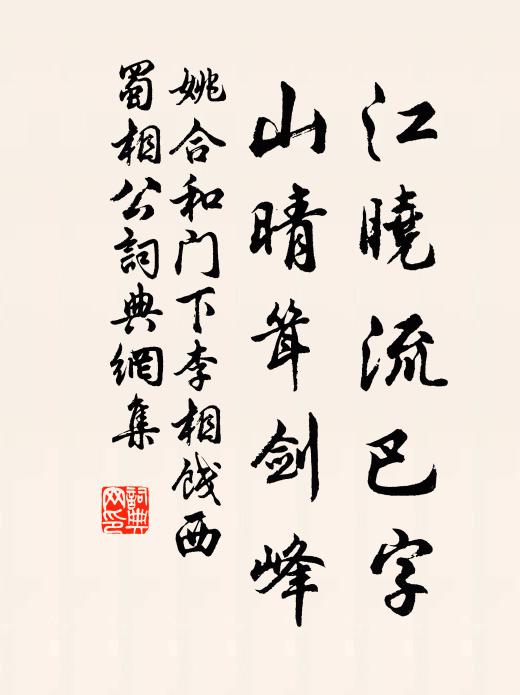 江曉流巴字
山晴耸剑峰
姚合和门下李相饯西
蜀相公詞典網集
詞典
网印